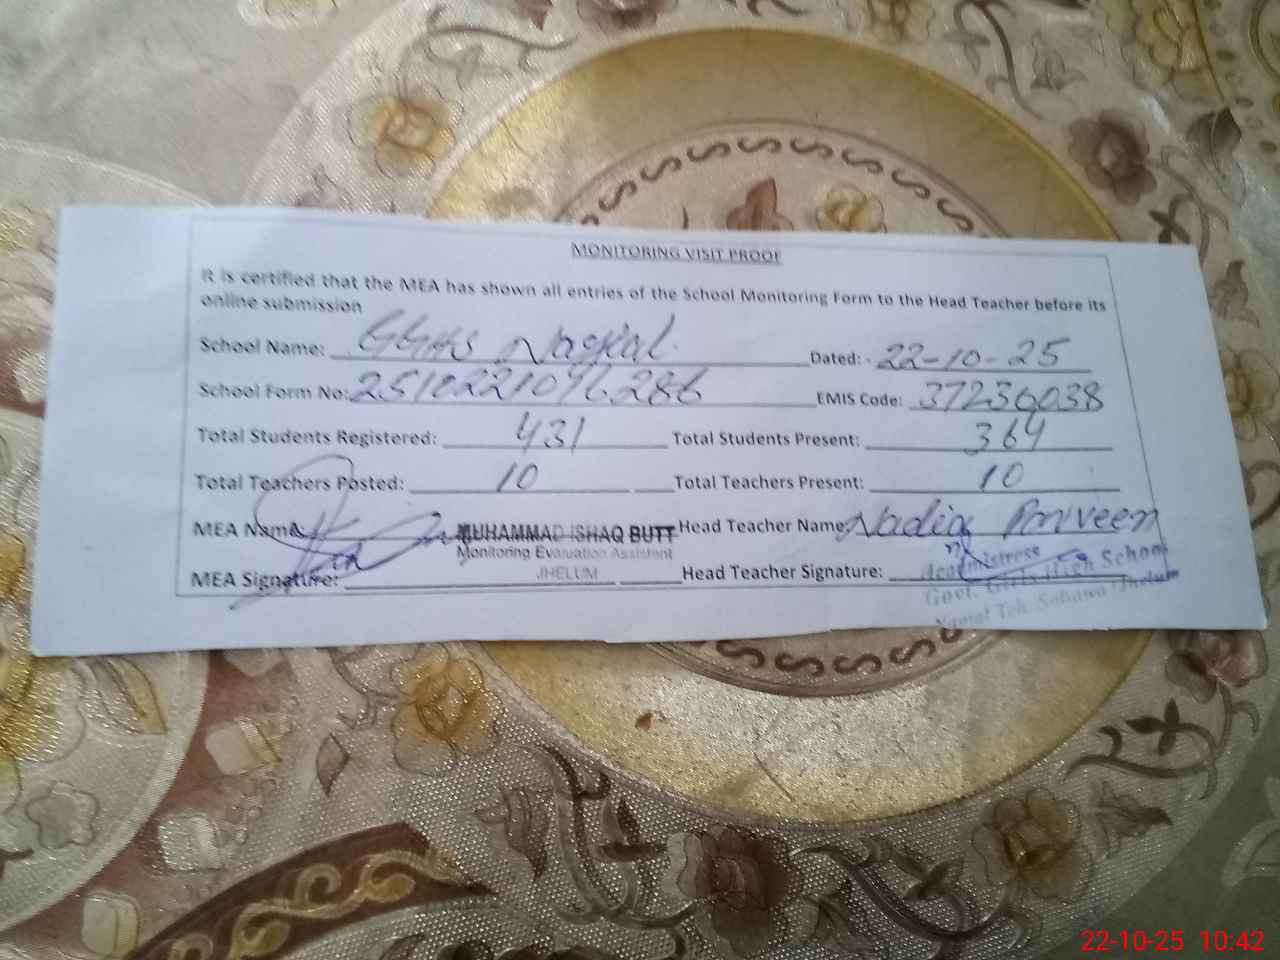 MONITORING VISIT PROOF
It is certified that the MEA has shown all entries of the School Monitoring Form to the Head Teacher before its
online submission
School Name: GGHS Nagial. Dated: - 22-10-25
School Form No: 251022107 6286 EMIS Code: 37236038
Total Students Registered: 431 Total Students Present: 364
Total Teachers Posted: 10 Total Teachers Present: 10
MEA Name: MUHAMMAD ISHAQ BUTT Head Teacher Name: Nadia Parveen
Monitoring Evaluation Assistent
JHELUM
MEA Signature: Head Teacher Signature:
Headmistress
Govt. Girls High School
Nagial Teh. Sohawa (Jhelum
22-10-25 10:42